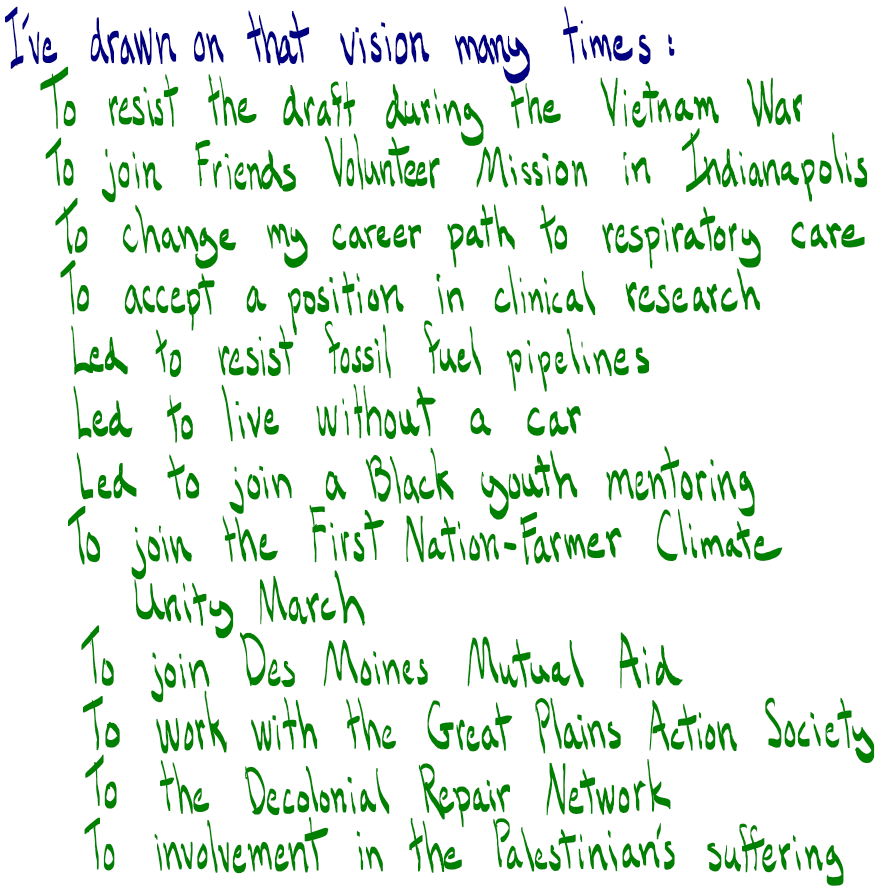 I've drawn on that vision many times:
To resist the draft during the Vietnam War
To join Friends Volunteer Mission in Indianapolis
To change my career path to respiratory care
To accept a position in clinical research
Led to resist fossil fuel pipelines
Led to live without a car
Led to join a Black youth mentoring
To join the First Nation-Farmer Climate
Unity March
To join Des Moines Mutual Aid
To work with the Great Plains Action Society
To the Decolonial Repair Network
To involvement in the Palestinian's suffering